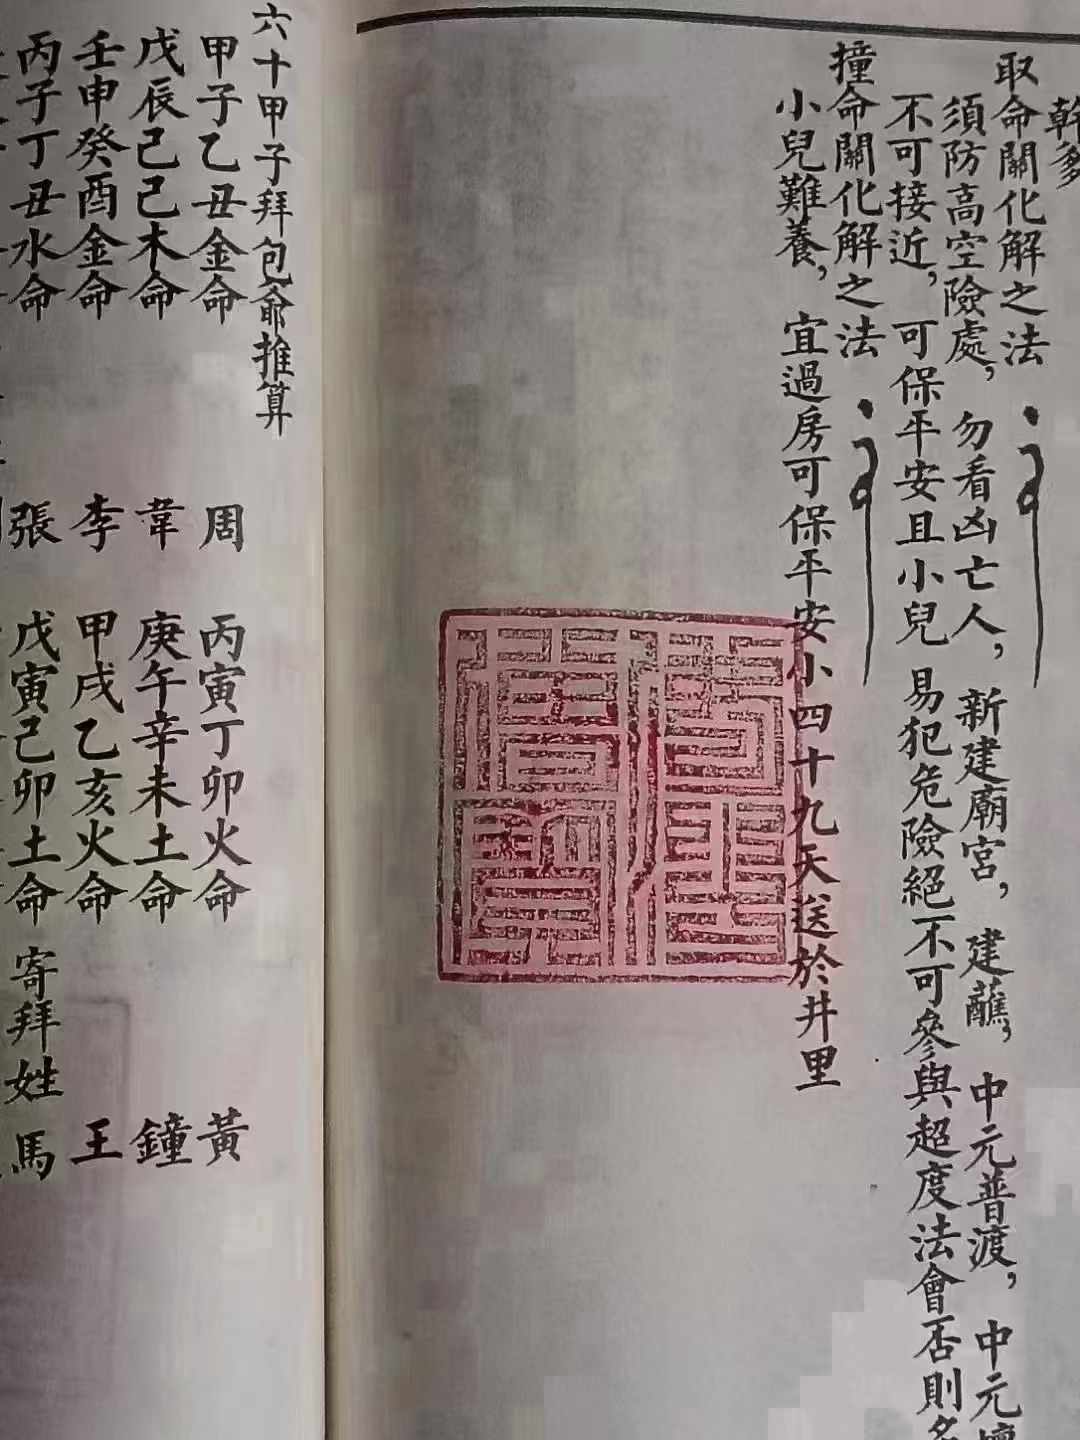 幹多
取命關化解之法
須防高空險處，勿看凶亡人，新建廟宮，建蘸，中元普渡，中元
不可接近，可保平安且小兒易犯危險絕不可參與超度法會否則多
撞命關化解之法
小兒難養，宜過房可保平安小四十九天送於井里
六十甲子拜包爺推算
甲子乙丑金命 周 丙寅丁卯火命 黃
戊辰己己木命 韋 庚午辛未土命 鐘
壬申癸酉金命 李 甲戌乙亥火命 王
丙子丁丑水命 張 戊寅己卯土命 寄拜姓 馬